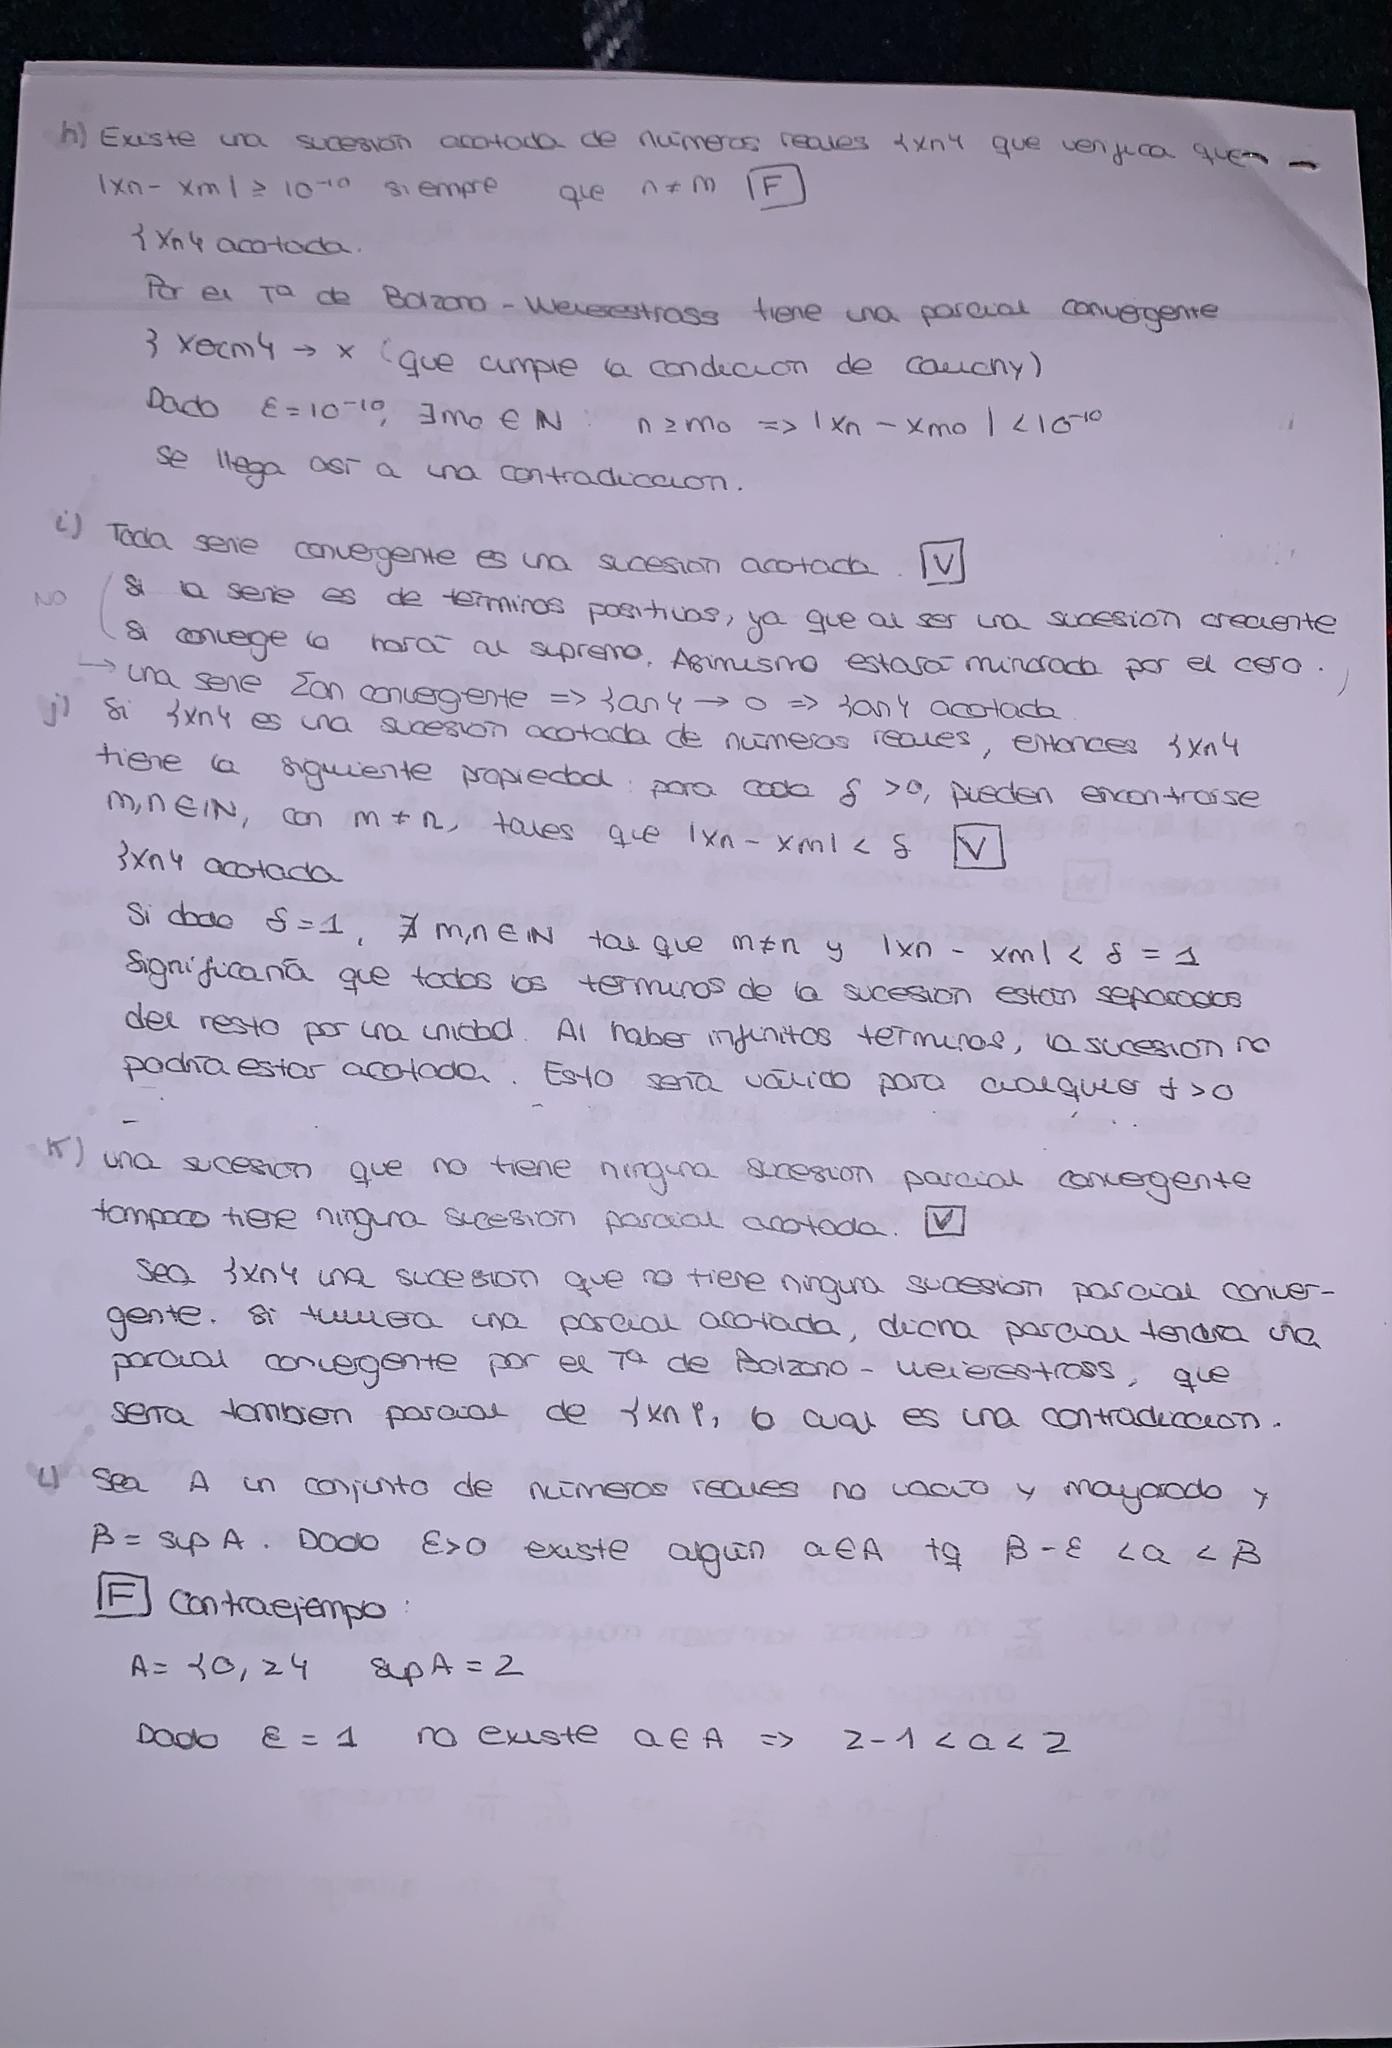 h) Existe una sucesión acotada de números reales {xn} que verifica que
|xn - xm| ≥ 10⁻¹⁰ siempre que n ≠ m [F]
{xn} acotada.
Por el Tª de Bolzano - Weierestrass tiene una parcial convergente
{xσ(n)} → x (que cumple la condición de Cauchy)
Dado ε = 10⁻¹⁰, ∃ m₀ ∈ ℕ : n ≥ m₀ => |xn - xm₀| < 10⁻¹⁰
se llega así a una contradicción.
i) Toda serie convergente es una sucesión acotada. [V]
Si la serie es de términos positivos, ya que al ser una sucesión creciente
NO
si converge lo hará al supremo. Asimismo estará minorada por el cero.
→ una serie Σan convergente => {an} → 0 => {an} acotada
j) Si {xn} es una sucesión acotada de números reales, entonces {xn}
tiene la siguiente propiedad: para cada δ > 0, pueden encontrarse
m,n ∈ ℕ, con m ≠ n, tales que |xn - xm| < δ [V]
{xn} acotada
Si dado δ = 1, ∄ m,n ∈ ℕ tal que m ≠ n y |xn - xm| < δ = 1
Significaría que todos los términos de la sucesión están separados
del resto por una unidad. Al haber infinitos términos, la sucesión no
podría estar acotada. Esto sería válido para cualquier δ > 0
k) una sucesión que no tiene ninguna sucesión parcial convergente
tampoco tiene ninguna sucesión parcial acotada. [V]
Sea {xn} una sucesión que no tiene ninguna sucesión parcial conver-
gente. Si tuviera una parcial acotada, dicha parcial tendría una
parcial convergente por el Tª de Bolzano - Weierestrass, que
sería también parcial de {xn}, lo cual es una contradicción.
l) Sea A un conjunto de números reales no vacío y mayorado y
β = sup A. Dado ε > 0 existe algún a ∈ A tq β - ε < a < β
[F] Contraejemplo:
A = {0, 2} sup A = 2
Dado ε = 1 no existe a ∈ A => 2 - 1 < a < 2